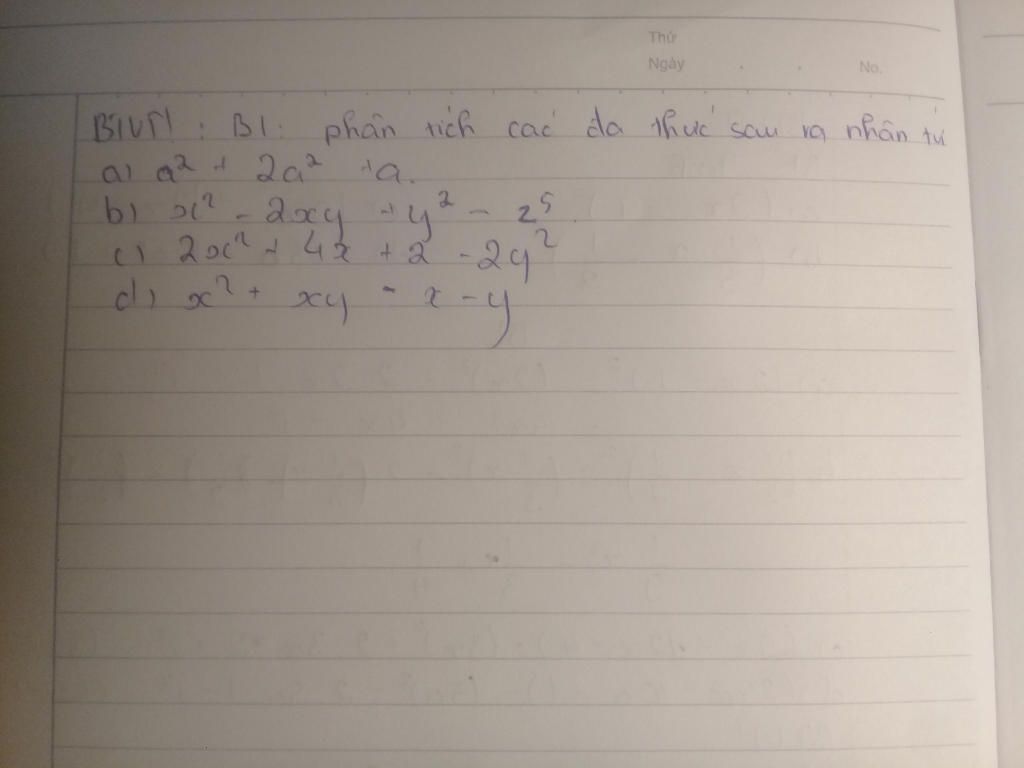 Thứ
Ngày . . No.
BTVN : B1 : phân tích các đa thức sau ra nhân tử
a) a² + 2a² + a.
b) x² - 2xy + y² - z⁵.
c) 2x² + 4x + 2 - 2y²
d) x² + xy - x - y